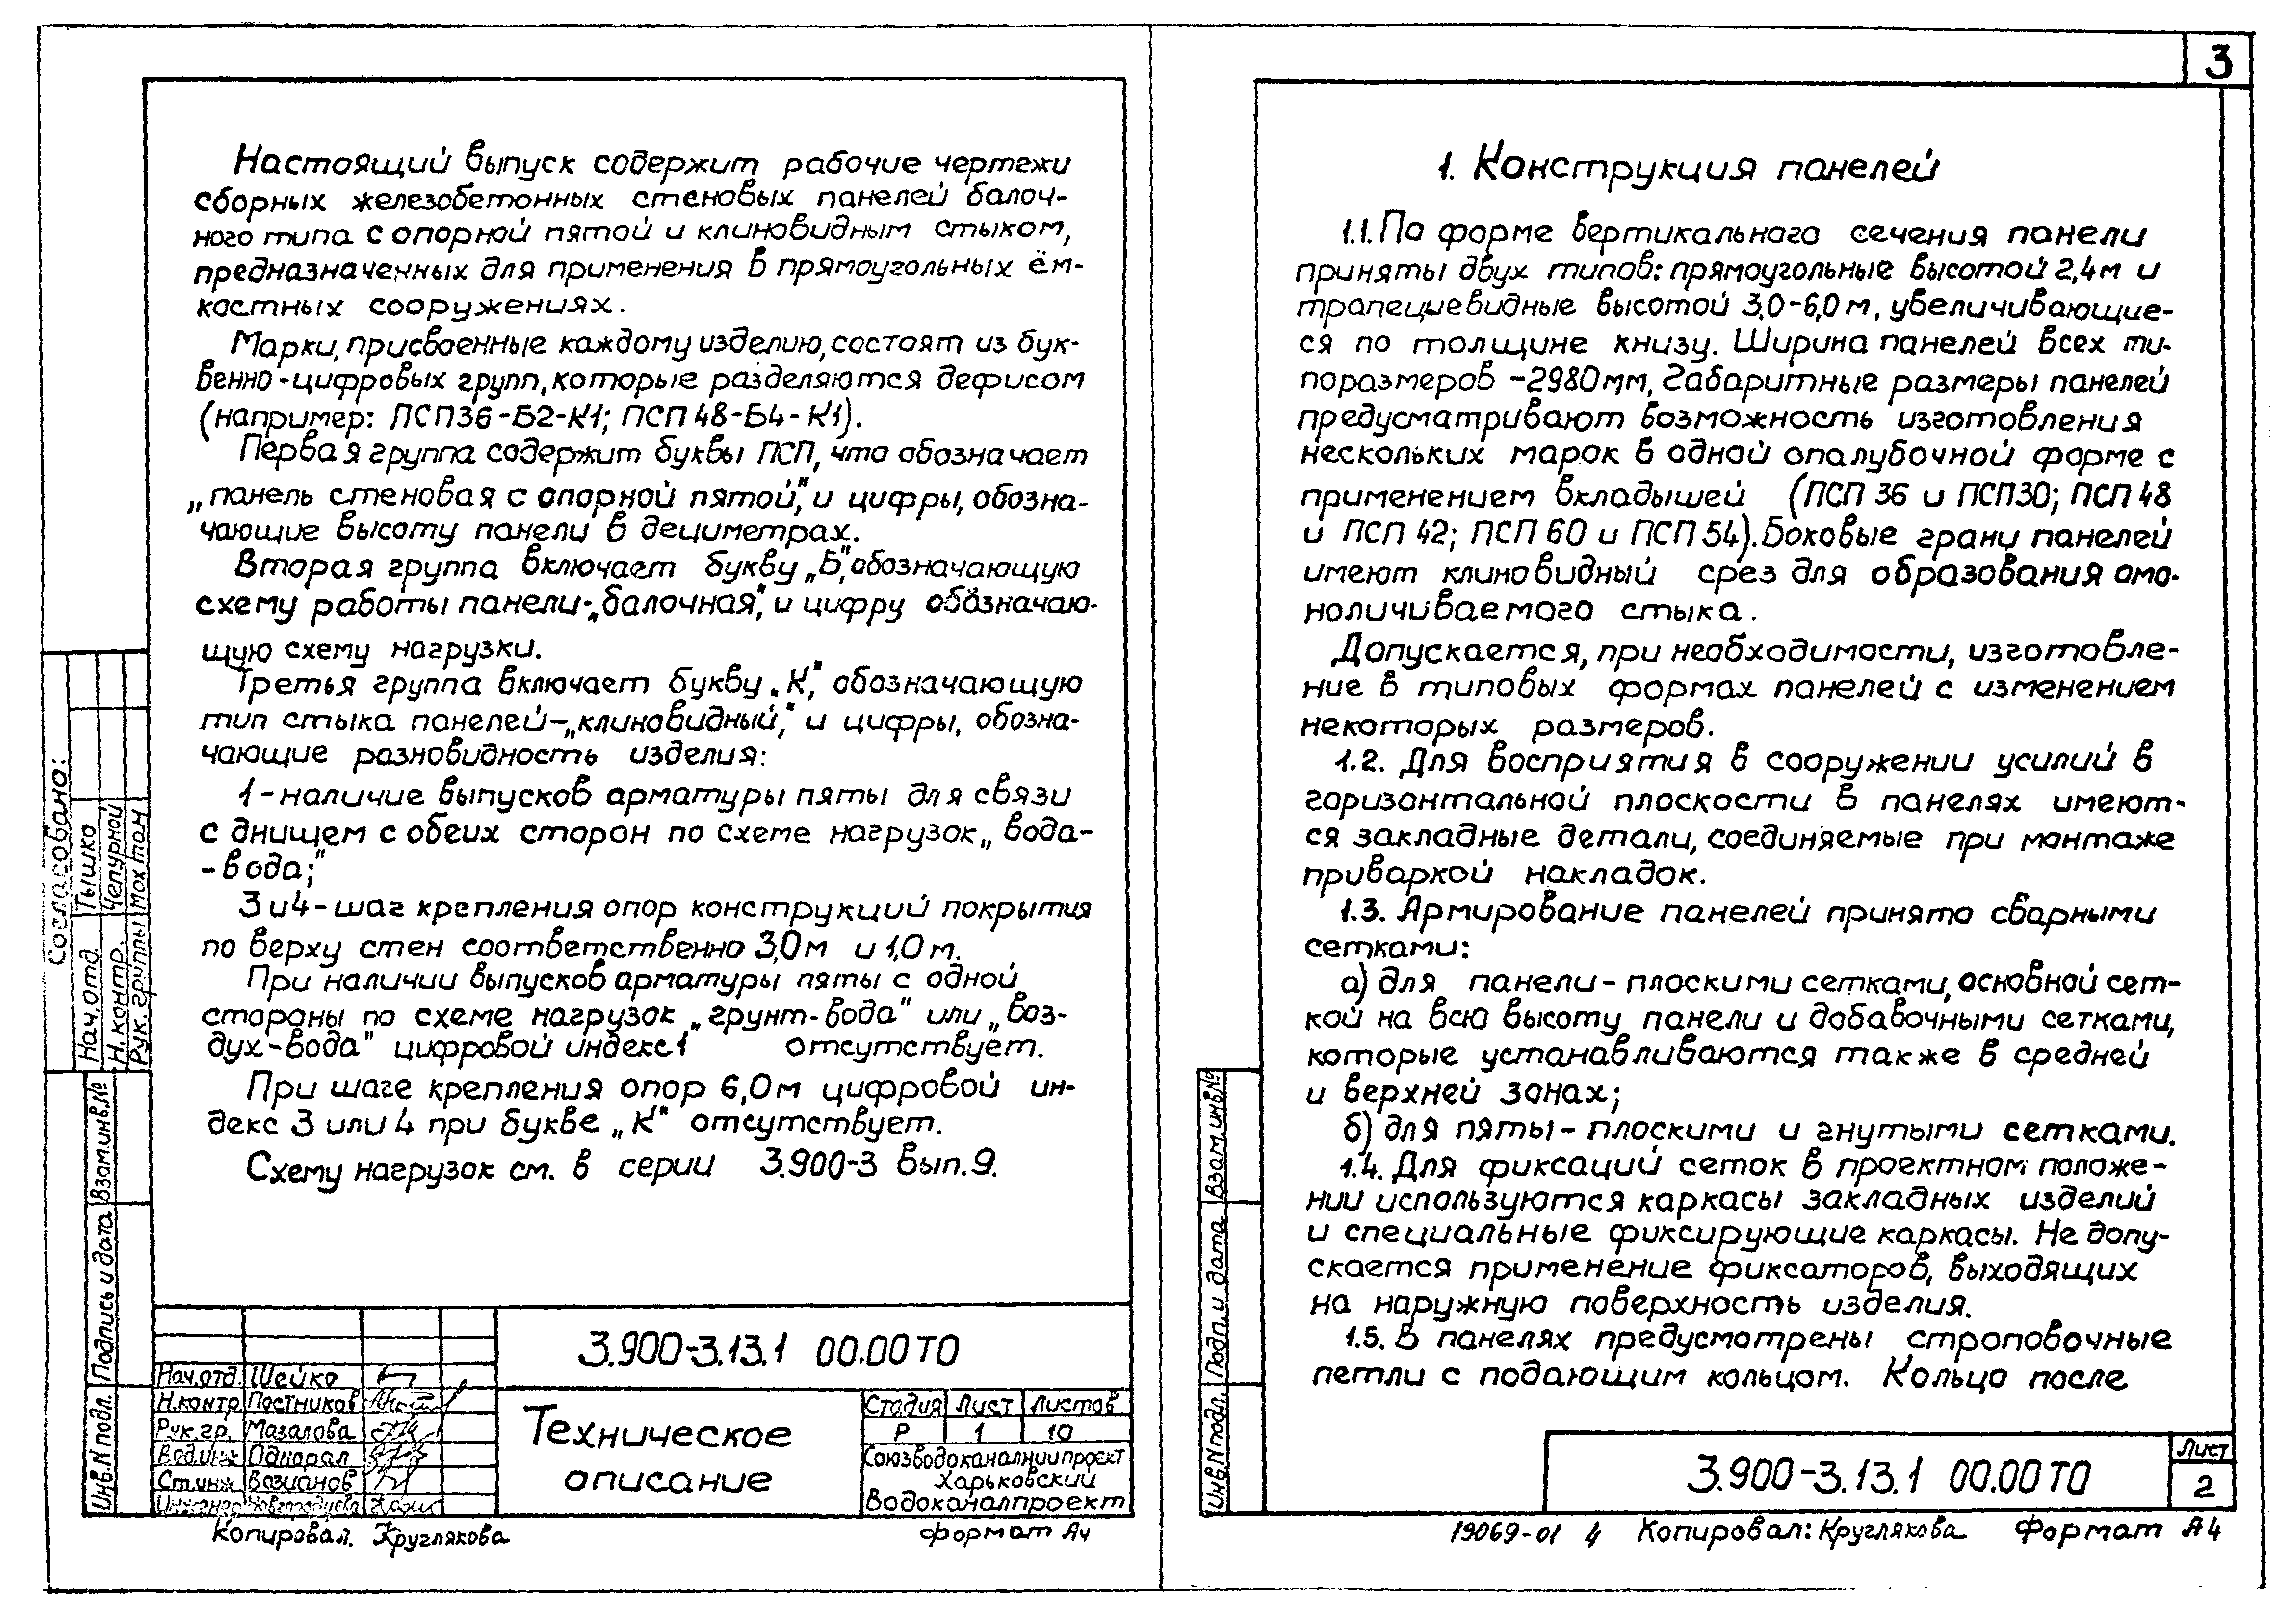 3
Настоящий выпуск содержит рабочие чертежи
сборных железобетонных стеновых панелей балоч-
ного типа с опорной пятой и клиновидным стыком,
предназначенных для применения в прямоугольных ём-
костных сооружениях.
Марки, присвоенные каждому изделию, состоят из бук-
венно-цифровых групп, которые разделяются дефисом
(например: ПСП36-Б2-К1; ПСП48-Б4-К1).
Первая группа содержит буквы ПСП, что обозначает
„панель стеновая с опорной пятой", и цифры, обозна-
чающие высоту панели в дециметрах.
Вторая группа включает букву „Б", обозначающую
схему работы панели-„балочная", и цифру обозначаю-
щую схему нагрузки.
Третья группа включает букву „К", обозначающую
тип стыка панелей-„клиновидный", и цифры, обозна-
чающие разновидность изделия:
1-наличие выпусков арматуры пяты для связи
с днищем с обеих сторон по схеме нагрузок „вода-
-вода;"
3 и 4-шаг крепления опор конструкций покрытия
по верху стен соответственно 3,0м и 1,0 м.
При наличии выпусков арматуры пяты с одной
стороны по схеме нагрузок „грунт-вода" или „воз-
дух-вода" цифровой индекс 1 отсутствует.
При шаге крепления опор 6,0м цифровой ин-
декс 3 или 4 при букве „К" отсутствует.
Схему нагрузок см. в серии 3.900-3 вып.9.
Согласовано:
Нач.отд. Тышко
Н.контр. Чепурной
Рук.группы Мохтон
Взам.инв.№
Подпись и дата
Инв.N подл.
3.900-3.13.1 00.00 ТО
Нач.отд. Шейко
Н.контр Постников
Рук.гр. Мазалова
Вед.инж Однорал
Ст.инж Вазианов
Инженер
Техническое
описание
Стадия Лист Листов
Р 1 10
Союзводоканалниипроект
Харьковский
Водоканалпроект
Копировал. Круглякова Формат А4
1. Конструкция панелей
1.1. По форме вертикального сечения панели
приняты двух типов: прямоугольные высотой 2,4м и
трапециевидные высотой 3,0-6,0м, увеличивающие-
ся по толщине книзу. Ширина панелей всех ти-
поразмеров -2980мм, Габаритные размеры панелей
предусматривают возможность изготовления
нескольких марок в одной опалубочной форме с
применением вкладышей (ПСП 36 и ПСП30; ПСП 48
и ПСП 42; ПСП 60 и ПСП 54). Боковые грани панелей
имеют клиновидный срез для образования омо-
ноличиваемого стыка.
Допускается, при необходимости, изготовле-
ние в типовых формах панелей с изменением
некоторых размеров.
1.2. Для восприятия в сооружении усилий в
горизонтальной плоскости в панелях имеют-
ся закладные детали, соединяемые при монтаже
приваркой накладок.
1.3. Армирование панелей принято сварными
сетками:
а) для панели-плоскими сетками, основной сет-
кой на всю высоту панели и добавочными сетками,
которые устанавливаются также в средней
и верхней зонах;
б) для пяты-плоскими и гнутыми сетками.
1.4. Для фиксаций сеток в проектном положе-
нии используются каркасы закладных изделий
и специальные фиксирующие каркасы. Не допу-
скается применение фиксаторов, выходящих
на наружную поверхность изделия.
1.5. В панелях предусмотрены строповочные
петли с подающим кольцом. Кольцо после
Взам.инв№
Подп. и дата
Инв.N подл.
3.900-3.13.1 00.00 ТО
Лист
2
19069-01 4 Копировал: Круглякова Формат А4